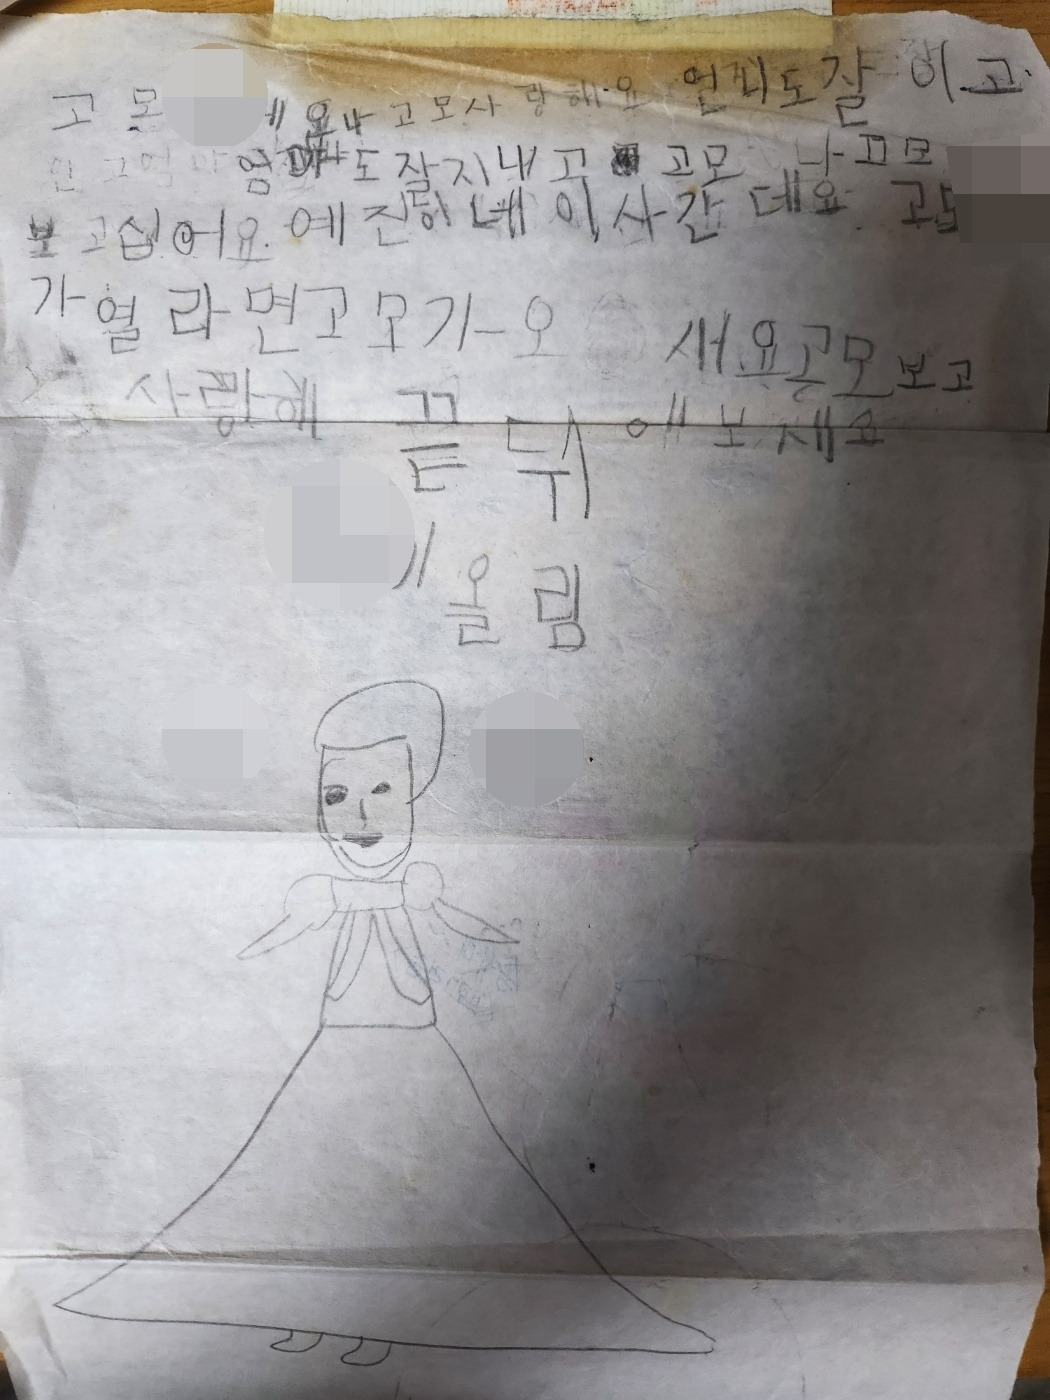 고모 에 요나 고모사랑해요 언니도잘 하고
엄마도잘지내고 고모 나 고모
보고십어요 예진이네 이사간데요 고모
가열라면고모기오 새요고모보고
사랑해 끝 뒤에보세요
올림